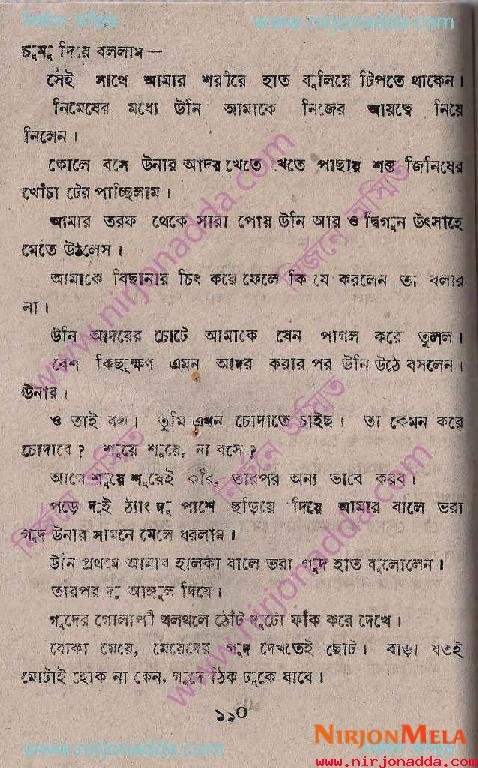 www.nirjonadda.com
চুমু দিয়ে বললাম—
সেই সাথে আমার শরীরে হাত বুলিয়ে টিপতে থাকেন।
নিমেষের মধ্যে উনি আমাকে নিজের আয়ত্বে নিয়ে
নিলেন।
কোলে বসে উনার আদর খেতে খেতে পাছায় শক্ত জিনিষের
খোঁচা টের পাচ্ছিলাম।
আমার তরফ থেকে সারা পেয়ে উনি আর ও দ্বিগুন উৎসাহে
মেতে উঠলেস।
আমাকে বিছানার চিৎ করে ফেলে কি যে করলেন তা বলার
না।
উনি আদরের চোটে আমাকে যেন পাগল করে তুলল।
বেশ কিছুক্ষণ এমন আদর করার পর উনি উঠে বসলেন।
উনার।
ও তাই বল। তুমি এখন চোদাতে চাইছ। তা কেমন করে
চোদাবে? শুয়ে শুয়ে, না বসে?
আগে শুয়ে শুয়েই করি, তারপর অন্য ভাবে করব।
পড়ে দুই ঠ্যাং দু পাশে ছড়িয়ে দিয়ে আমার বালে ভরা
গুদ উনার সামনে মেলে ধরলাম।
উনি প্রথমে আমার হালকা বালে ভরা গুদে হাত বুলোলেন।
তারপর দু আঙ্গুল দিয়ে।
গুদের গোলাপী থলথলে ঠোঁট দুটো ফাঁক করে দেখে।
বোকা মেয়ে, মেয়েদের গুদ দেখতেই ছোট। বাড়া যতই
মোটাই হোক না কেন, গুদে ঠিক ঢুকে যাবে।
১১০
NIRJONMELA
www.nirjonadda.com
www.nirjonadda.com